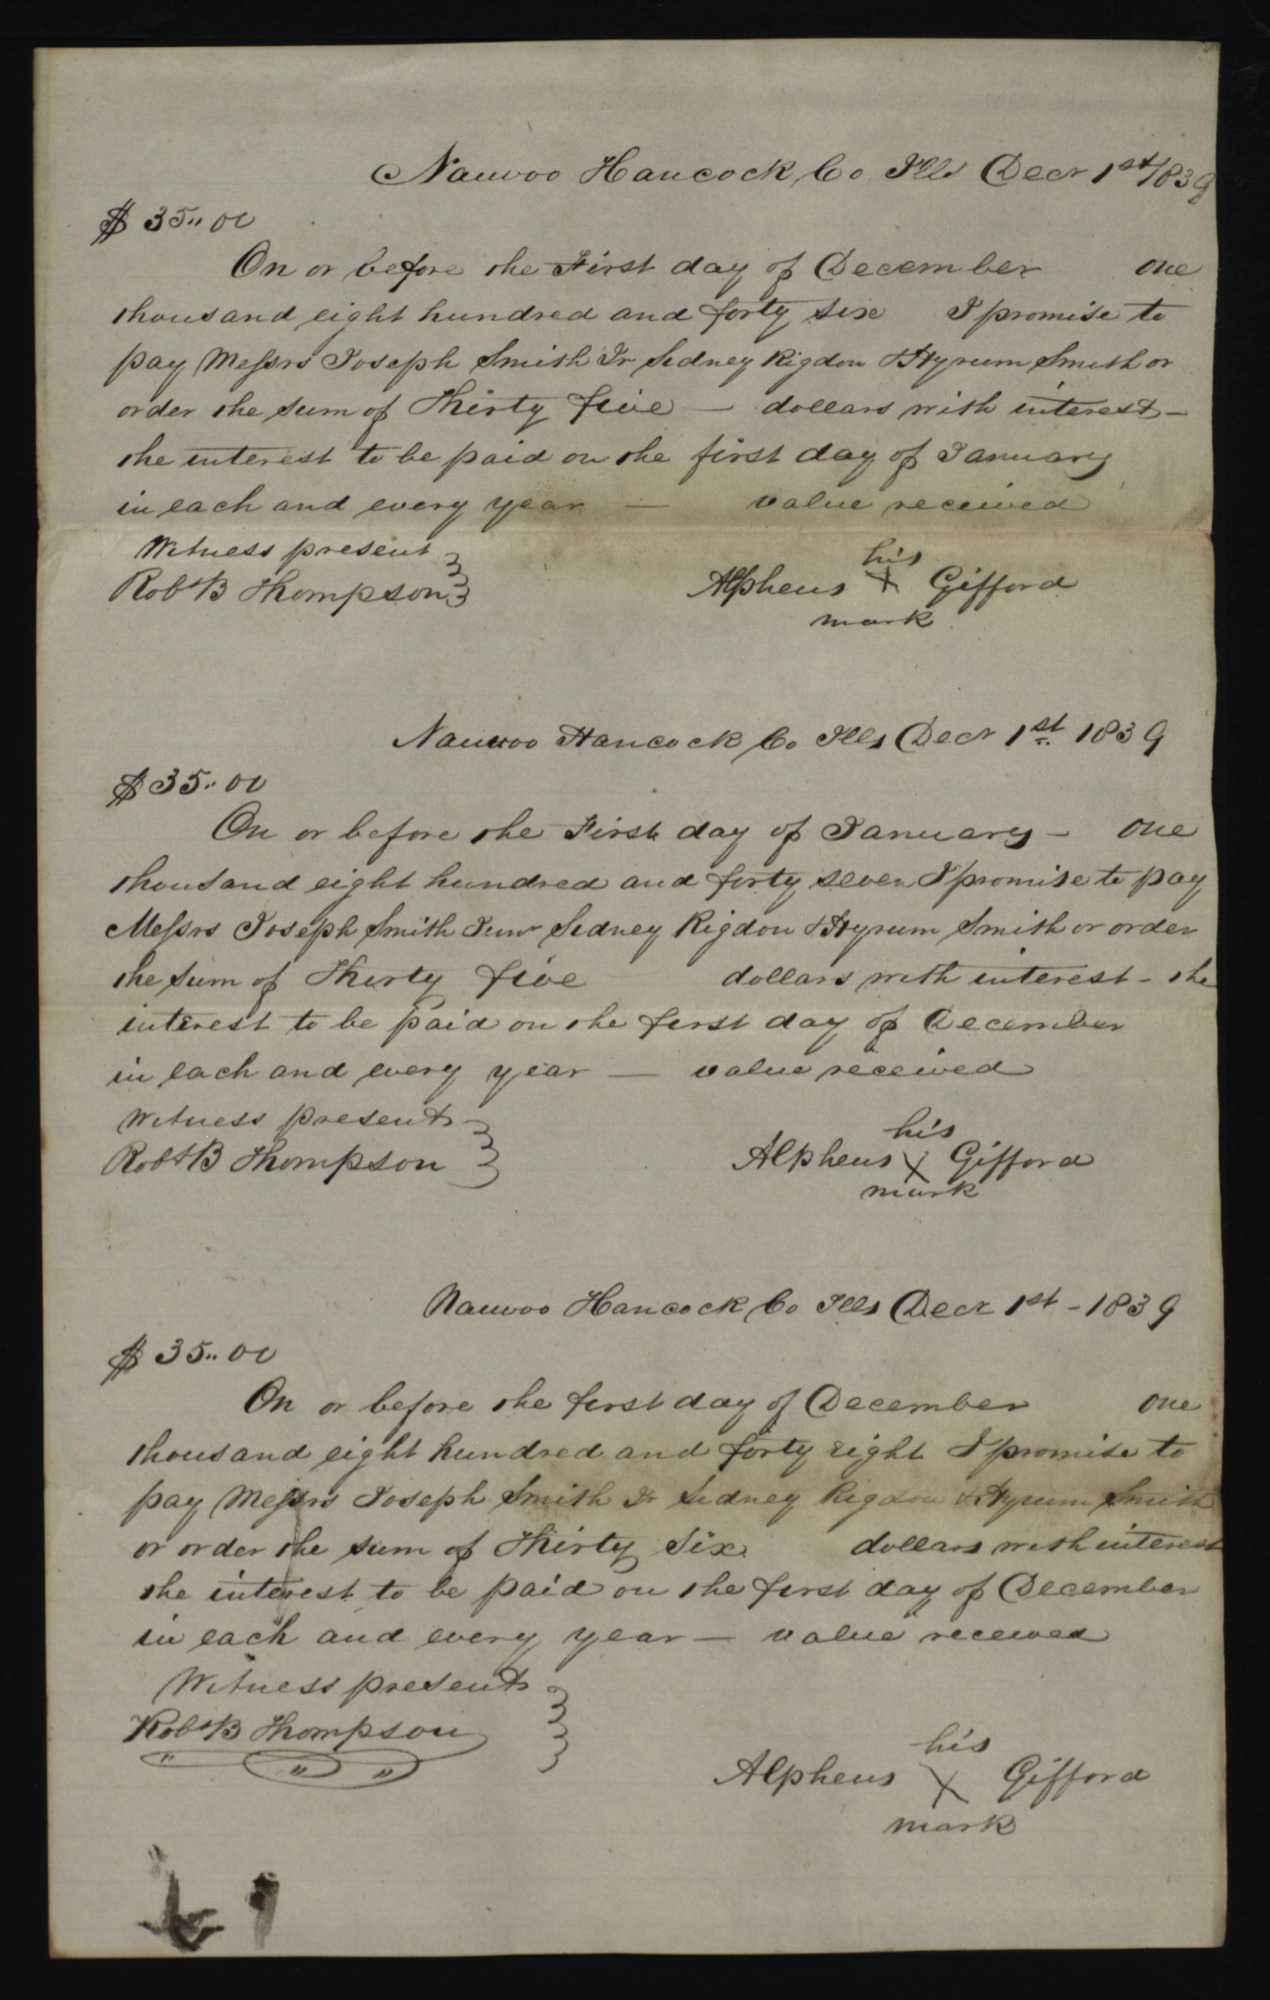 Nauvoo Hancock Co Ills Decr 1st 1839
$ 35,,00
On or before the First day of December one
thousand eight hundred and forty six I promise to
pay Messrs Joseph Smith Jr Sidney Rigdon & Hyrum Smith or
order the sum of Thirty five — dollars with interest –
the interest to be paid on the first day of January
in each and every year — value received
Witness present
Robt B Thompson
his
Alpheus X Gifford
mark
Nauvoo Hancock Co Ills Decr 1st 1839
$ 35,,00
On or before the First day of January – one
thousand eight hundred and forty seven I promise to pay
Messrs Joseph Smith Junr Sidney Rigdon & Hyrum Smith or order
the sum of Thirty five dollars with interest – the
interest to be paid on the first day of December
in each and every year — value received
Witness present
Robt B Thompson
his
Alpheus X Gifford
mark
Nauvoo Hancock Co Ills Decr 1st – 1839
$ 35,,00
On or before the first day of December one
thousand eight hundred and forty eight I promise to
pay Messrs Joseph Smith Jr Sidney Rigdon & Hyrum Smith
or order the sum of Thirty Six dollars with interest
the interest to be paid on the first day of December
in each and every year — value received
Witness present
Robt B Thompson
his
Alpheus X Gifford
mark